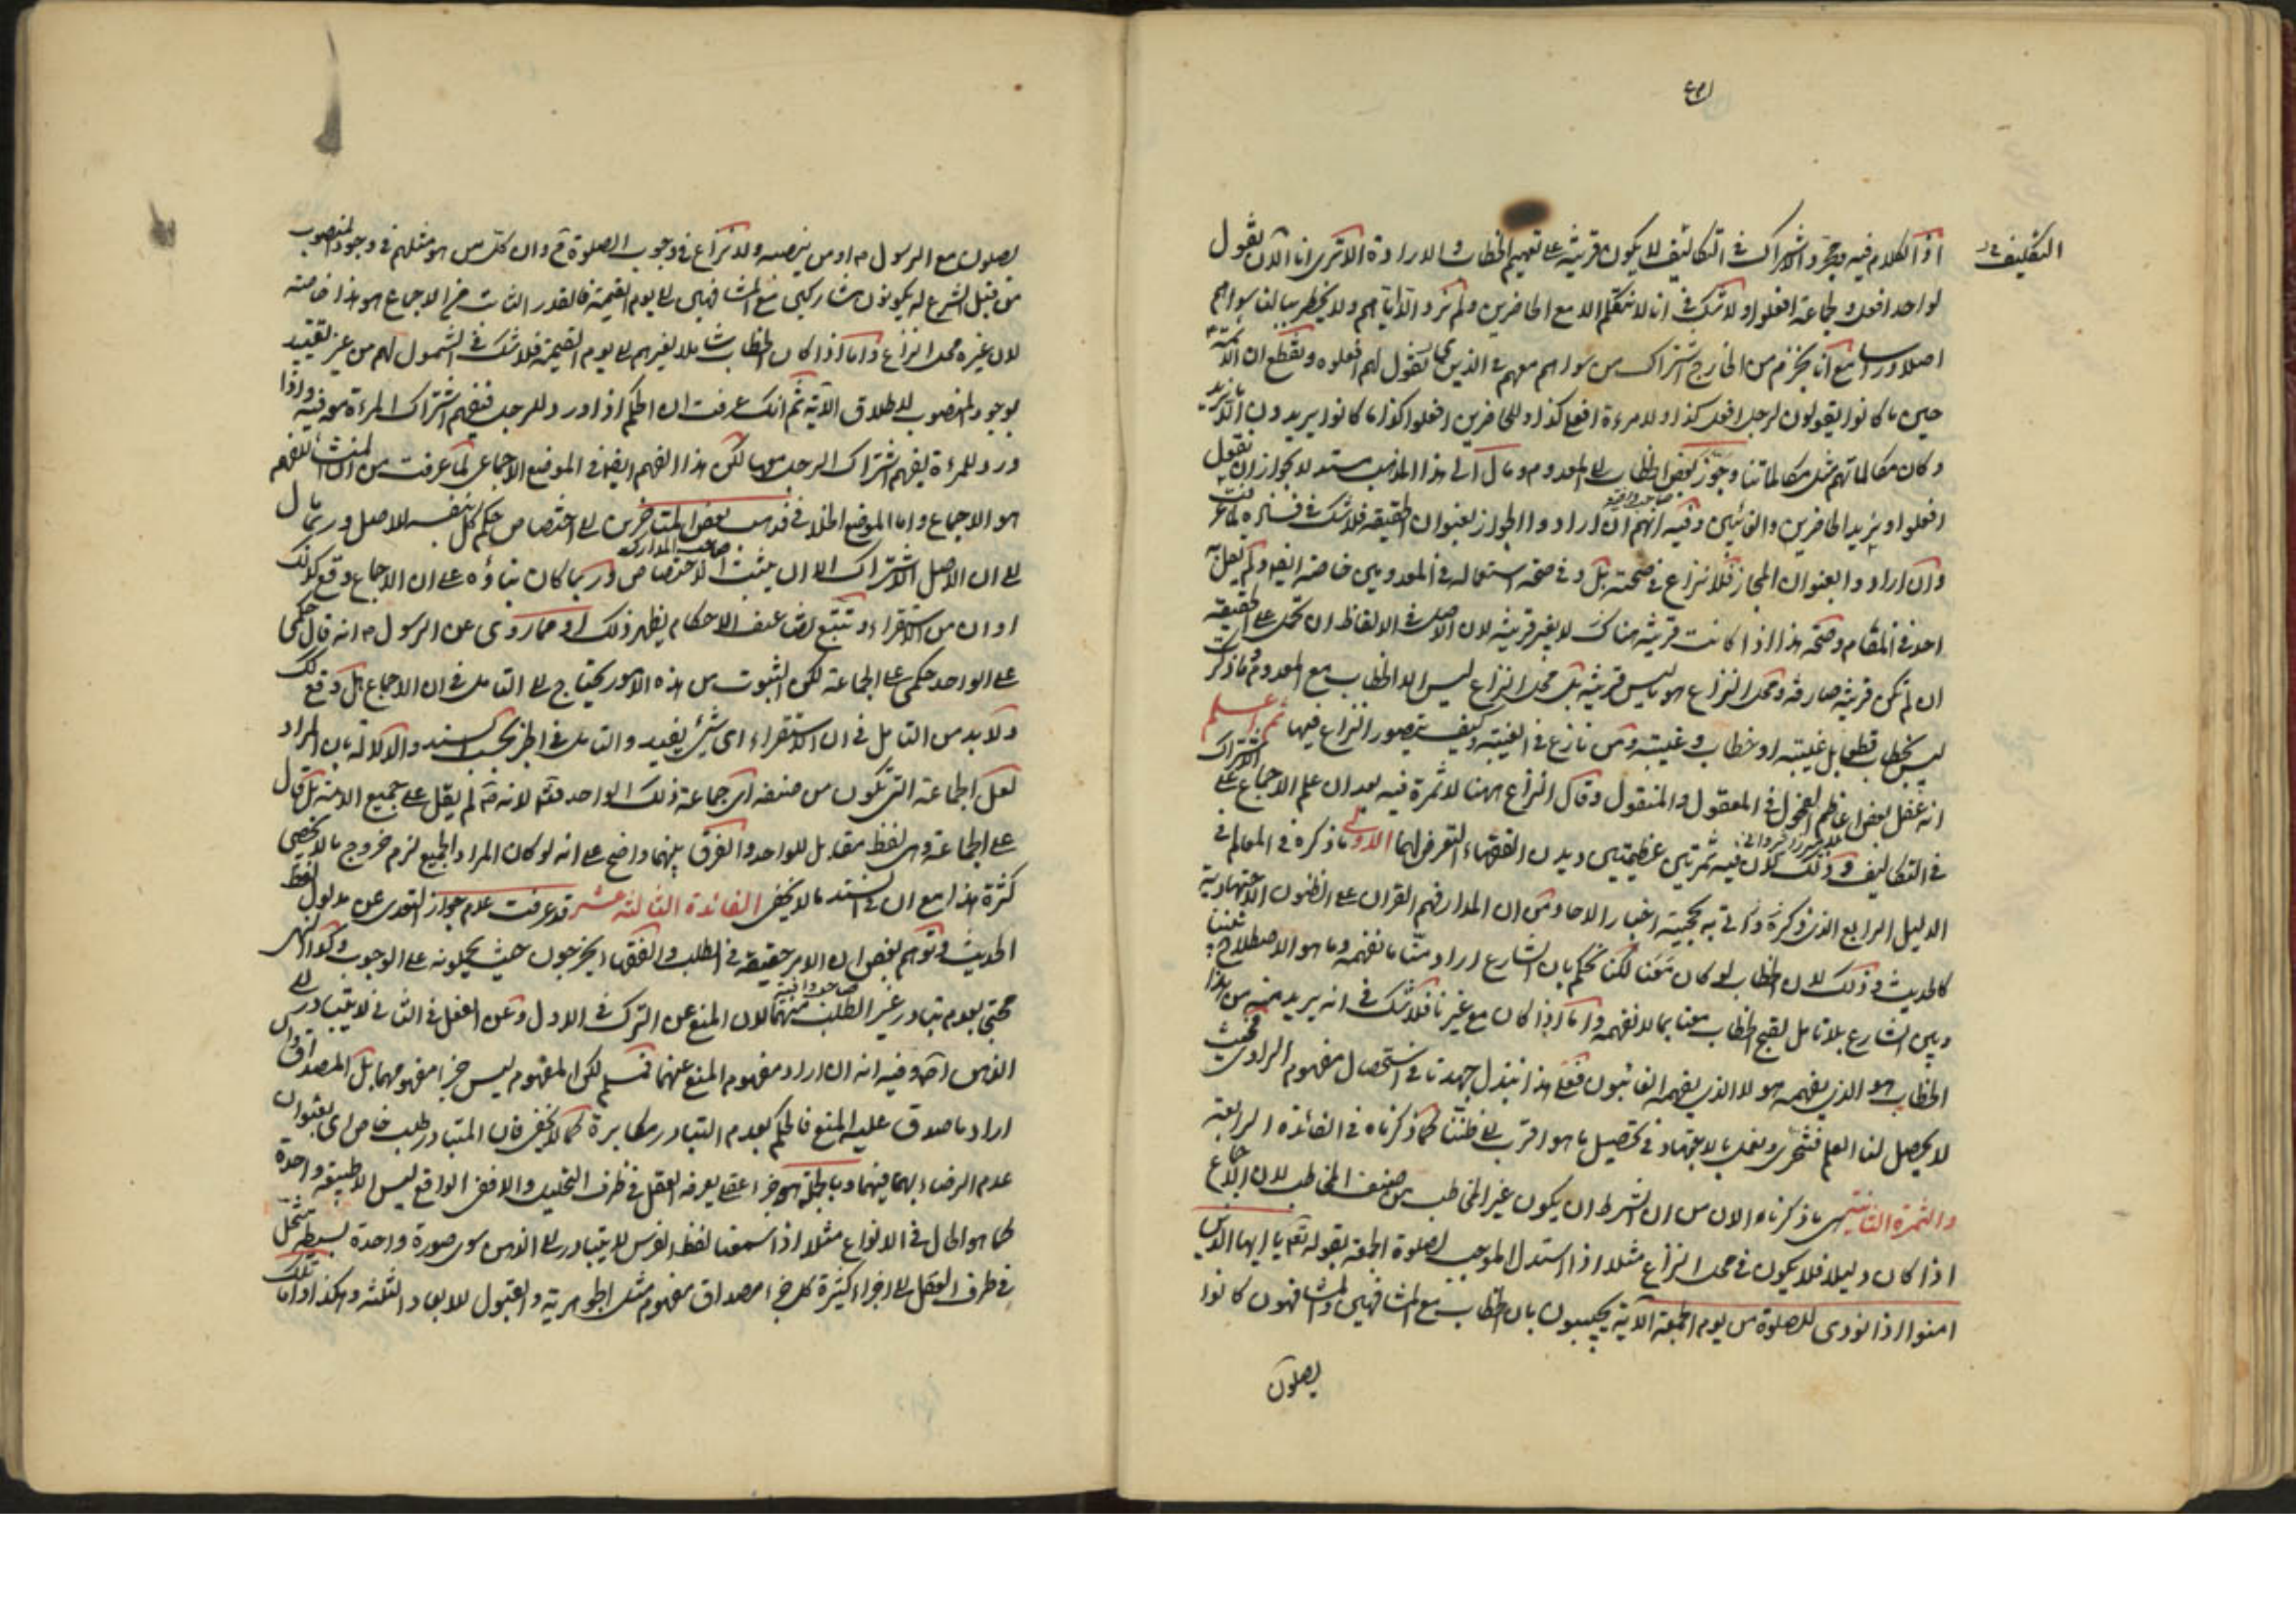 التكليف
اذ الكلام فيه ومجرد اشتراك في التكاليف لا يكون قرينة على تعميم الخطاب والارادة الا ترى انا الآن نقول
لواحد افعل ولجماعة افعلوا ولا شك في انا لا نتكلم الا مع الحاضرين ولم نرد الا اياهم ولا يخطر ببالنا سواهم
اصلا ورأسا مع انا نجزم من الخارج اشتراك من سواهم معهم في الذي نقول لهم افعلوه ونقطع ان الائمة
حين ما كانوا يقولون لرجل افعل كذا ولامرءة افعلي كذا وللحاضرين افعلوا كذا ما كانوا يريدون الا ما نريد
وكان مكالماتهم مثل مكالماتنا وجوز بعض الخطاب الى المعدوم ومال الى هذا المذهب مستدلا بجواز ان نقول
افعلوا ونريد الحاضرين والغائبين وفيه انهم ان ارادوا الجواز بعنوان الحقيقة فلا شك في فساده لما عرفت
وان ارادوا بعنوان المجاز فلا نزاع في صحته بل وفي صحة استعماله في المعدومين خاصة ايضا ولم يقل به
احد في المقام وصحة هذا اذا كانت قرينة هناك لا بغير قرينة لان الاصل في الالفاظ ان تحمل على الحقيقة
ان لم تكن قرينة صارفة ومحل النزاع هو ما ليس قرينة بل محل النزاع ليس الا الخطاب مع المعدوم وما ذكرت
ليس بخطاب قطعا بل غيبته او خطاب وغيبته ومن نازع في الغيبة وكيف يتصور النزاع فيها ثم اعلم
انه غفل بعض اعاظم الفحول في المعقول والمنقول وقال النزاع ههنا لا ثمرة فيه بعد ان علم الاجماع على الاشتراك
في التكاليف وذلك لان فيه ثمرتين عظيمتين وديدن الفقهاء التعرض لهما الاولى ما ذكره في المعالم في
الدليل الرابع الذي ذكره واتى به لحجية اخبار الاحاد من ان المدار فهم القران على الظنون الاجتهادية
كالحديث وذلك لان الخطاب لو كان معنا لكنا نحكم بان الشارع اراد منا ما نفهمه وما هو الاصطلاح بيننا
وبين الشارع بلا تامل لقبح الخطاب معنا بما لا نفهمه واما اذا كان مع غيرنا فلا شك في انه يريد منه من هذا
الخطاب هو الذي يفهمه هو لا الذي يفهمه الغائبون فعلى هذا نبذل جهدنا في استحصال مفهوم الراوي فحيث
لا يحصل لنا العلم فنتحرى ونعمل بالاجتهاد في تحصيل ما هو اقرب الى ظننا كما ذكرناه في الفائدة الرابعة
والثمرة الثانية هي ما ذكرناه الان من ان الشرط ان يكون غير المخاطب من صنف المخاطب لان الاجماع
اذا كان دليلا فلا يكون في محل النزاع مثلا اذا استدل الموجب لصلوة الجمعة بقوله تعم يا ايها الذين
امنوا اذا نودي للصلوة من يوم الجمعة الآية يجيبون بان الخطاب مع المشافهين والمشافهون كانوا
يصلون
يصلون مع الرسول ص او من ينصبه ولا نزاع في وجوب الصلوة ح وان كل من هو مثلهم في وجود المنصوب
من قبل الشرع له يكونون مشاركين مع المشافهين الى يوم القيمة فالقدر الثابت من الاجماع هو هذا خاصة
لان غيره محل النزاع واما اذا كان الخطاب شاملا لغيرهم الى يوم القيمة فلا شك في الشمول لهم من غير تقييد
بوجود المنصوب لاطلاق الآية ثم انك عرفت ان الحكم اذا ورد للرجل فنفهم اشتراك المرءة معه فيه واذا
ورد للمرءة يفهم اشتراك الرجل معها لكن هذا الفهم ايضا في الموضع الاجماعي لما عرفت من ان المنشأ للفهم
هو الاجماع واما الموضع الخلافي فذهب بعض المتاخرين الى اختصاص حكم كل بنفسه للاصل وربما مال
صاحب المدارك
الى ان الاصل الاشتراك الا ان يثبت الاختصاص وربما كان بناؤه على ان الاجماع وقع كذلك
او ان من الاستقراء وتتبع تضاعيف الاحكام يظهر ذلك او مما روي عن الرسول ص انه قال حكمي
على الواحد حكمي على الجماعة لكن الثبوت من هذه الامور يحتاج الى التامل في ان الاجماع هل وقع كذلك
ولا بد من التامل في ان الاستقراء اي شيء يفيد والتامل في الخبر بحسب السند والدلالة بان المراد
لعل الجماعة التي تكون من صنفه اي جماعة ذلك الواحد فتم لانه ص لم يقل على جميع الامة بل قال
على الجماعة وهي لفظ مقابل للواحد والفرق بينهما واضح على انه لو كان المراد الجميع لزم خروج ما لا يحصى
كثرة هذا مع ان في السند ما لا يخفى الفائدة الثالثة عشر قد عرفت عدم جواز التعدي عن مدلول لفظ
الحديث وتوهم بعض ان الامر حقيقة في الطلب والفقهاء يخرجون حيث يحملونه على الوجوب وكذا النهي
محتجا بعدم تبادر غير الطلب منهما لان المنع عن الترك في الاول وعن الفعل في الثاني لا يتبادر الى
الذهن اصلا وفيه انه ان اراد مفهوم المنع عنهما فمسلم لكن المفهوم ليس جزء مفهومهما بل المصداق وان
اراد ما صدق عليه المنع فالحكم بعدم التبادر مكابرة كما لا يخفى فان المتبادر طلب خاص اي بعنوان
عدم الرضاء بهما فيهما وبالجملة هو جزء عقلي يعرفه العقل في ظرف التحليل والا ففي الواقع ليس الا طبيعة واحدة
كما هو الحال في الانواع مثلا اذا سمعنا لفظ الفرس لا يتبادر الى الذهن سوى صورة واحدة بسيطة تنحل
في ظرف العقل الى اجزاء كثيرة كل جزء مصداق مفهوم مثل الجوهرية والقبول للابعاد الثلثة وهكذا واما تلك